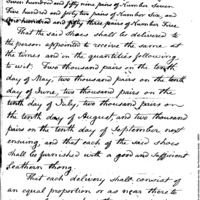 hundred and fifty nine pairs of Number Seven
Five hundred and sixty two pairs of Number Six, and
hundred and fifty three pairs of Number Five.
That the said Shoes shall be delivered to
the person appointed to receive the same at
the times and in the quantities following
to wit: Two thousand pairs on the tenth
day of May, two thousand pairs on the tenth
day of June, two thousand pairs on
the tenth day of July, two thousand pairs on
the tenth day of August, and two thousand
pairs on the tenth day of September next
ensuing, and that each of the said shoes
shall be furnished with a good and sufficient
Leathern thong.
That each delivery shall consist of
an equal proportion or as near there to